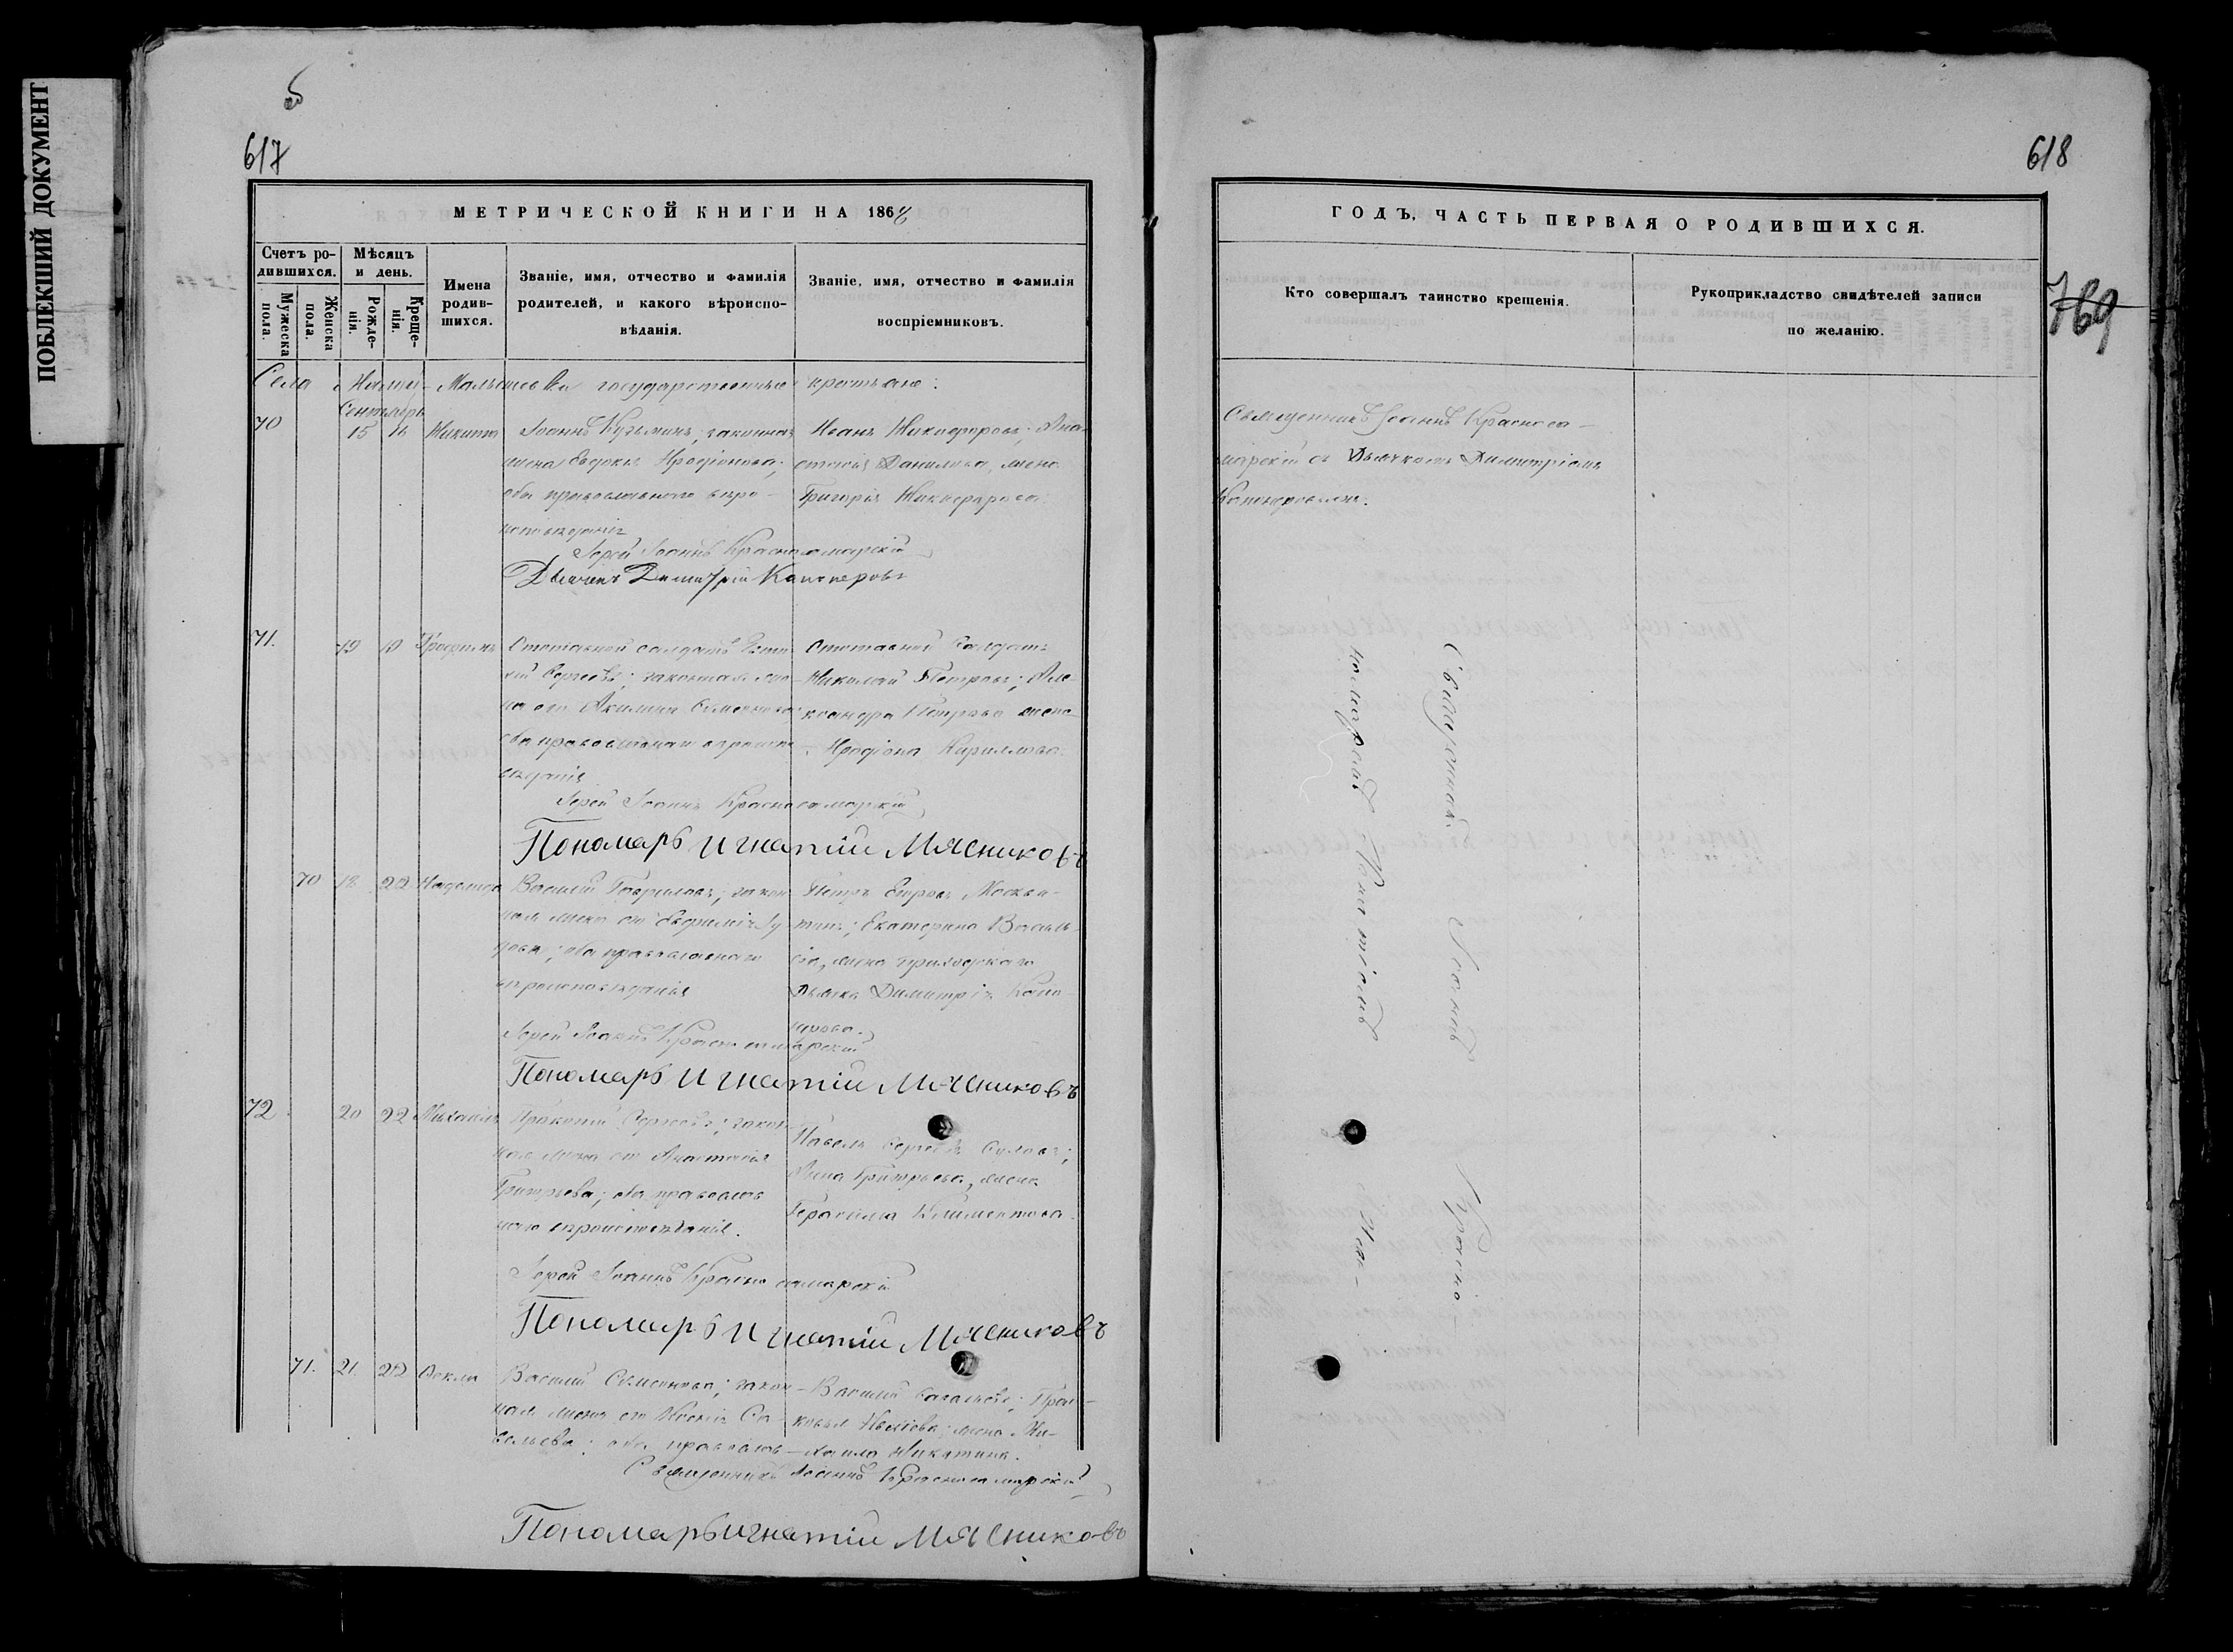 ПОБЛЕКШИЙ ДОКУМЕНТ
617
МЕТРИЧЕСКОЙ КНИГИ НА 186
Счетъ ро-
дившихся.
Мужеска
пола.
Женска
пола.
Мѣсяцъ
и день.
Рожде-
нія.
Креще-
нія.
Имена
родив-
шихся.
Званіе, имя, отчество и фамилія
родителей, и какого вѣроиспо-
вѣданія.
Званіе, имя, отчество и фамилія
воспріемниковъ.
Села Малышевки государственные крестьяне:
Сентябрь
70 15 16 Никита
Іоаннъ Кузьминъ, законная
жена Евдокія Иродіонова;
оба православнаго вѣро-
исповѣданія
Иванъ Никифоровъ; Ана-
стасія Данилова, жена
Григорія Никифорова.
Іерей Іоаннъ Красносамарскій
Дьячекъ Димитрій Каноперовъ
71. 19 19 Трофимъ
Отставной солдатъ
Сергеевъ; законная же-
на его Акилина Семенова
оба православнаго вѣроиспо-
вѣданія
Отставной солдатъ
Николай Петровъ; Але-
ксандра Петрова жена
Иродіона Кириллова.
Іерей Іоаннъ Красносамарскій
Пономарь Игнатій Мясниковъ
70 18 22
Василій Гавриловъ; закон-
ная жена его Евфимія
оба православнаго
вѣроисповѣданія
Петръ Егоровъ Москви-
тинъ; Екатерина Василь-
ева, жена приходскаго
Дьячка Димитрія Кано-
перова.
Іерей Іоаннъ Красносамарскій
Пономарь Игнатій Мясниковъ
72 20 22 Михаилъ
Прокопій Сергеевъ; закон-
ная жена его Анастасія
Григорьева; оба православ-
наго вѣроисповѣданія.
Павелъ Сергеевъ
Анна Григорьева, жена
Герасима Климентова.
Іерей Іоаннъ Красносамарскій
Пономарь Игнатій Мясниковъ
71. 21 22 Ѳекла
Василій Семеновъ; закон-
ная жена его Ксенія Са-
вельева; оба православ-
Василій Савельевъ; Прас-
ковья Ивлева; жена Ми-
хаила Никитина.
Священникъ Іоаннъ Красносамарскій
Пономарь Игнатій Мясниковъ
618
ГОДЪ, ЧАСТЬ ПЕРВАЯ О РОДИВШИХСЯ.
Кто совершалъ таинство крещенія.
Рукоприкладство свидѣтелей записи
по желанію.
769
Священникъ Іоаннъ Красноса-
марскій съ Дьячкомъ Димитріемъ
Каноперовымъ.
Священникъ Іоаннъ Красно-
самарскій